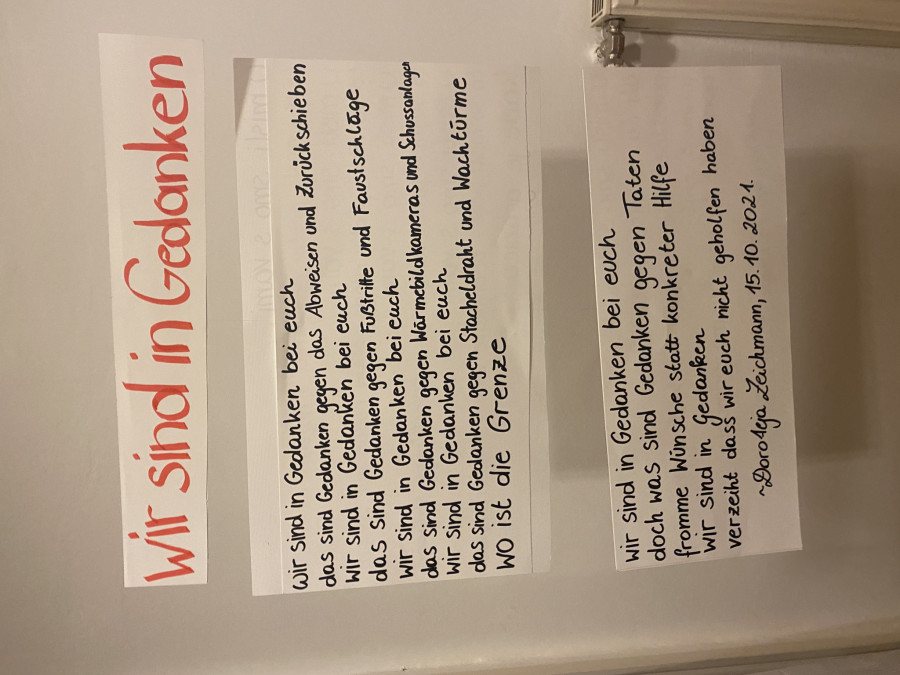 Wir sind in Gedanken
Wir sind in Gedanken bei euch
das sind Gedanken gegen das Abweisen und Zurückschieben
Wir sind in Gedanken bei euch
das sind Gedanken gegen Fußtritte und Faustschläge
Wir sind in Gedanken bei euch
das sind Gedanken gegen Wärmebildkameras und Schussanlagen
Wir sind in Gedanken bei euch
das sind Gedanken gegen Stacheldraht und Wachtürme
WO ist die Grenze
wir sind in Gedanken bei euch
doch was sind Gedanken gegen Taten
fromme Wünsche statt konkreter Hilfe
wir sind in Gedanken
verzeiht dass wir euch nicht geholfen haben
~Doroteja Zeichmann, 15.10.2021.